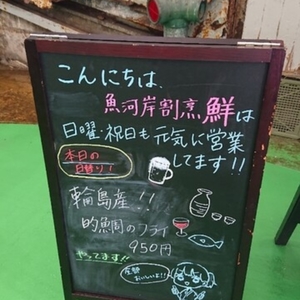 こんにちは、
魚河岸割烹 鮮は
日曜・祝日も元気に営業
してます!!
本日の
日替り!
輪島産!!
的鯛のフライ
950円
やってます!!